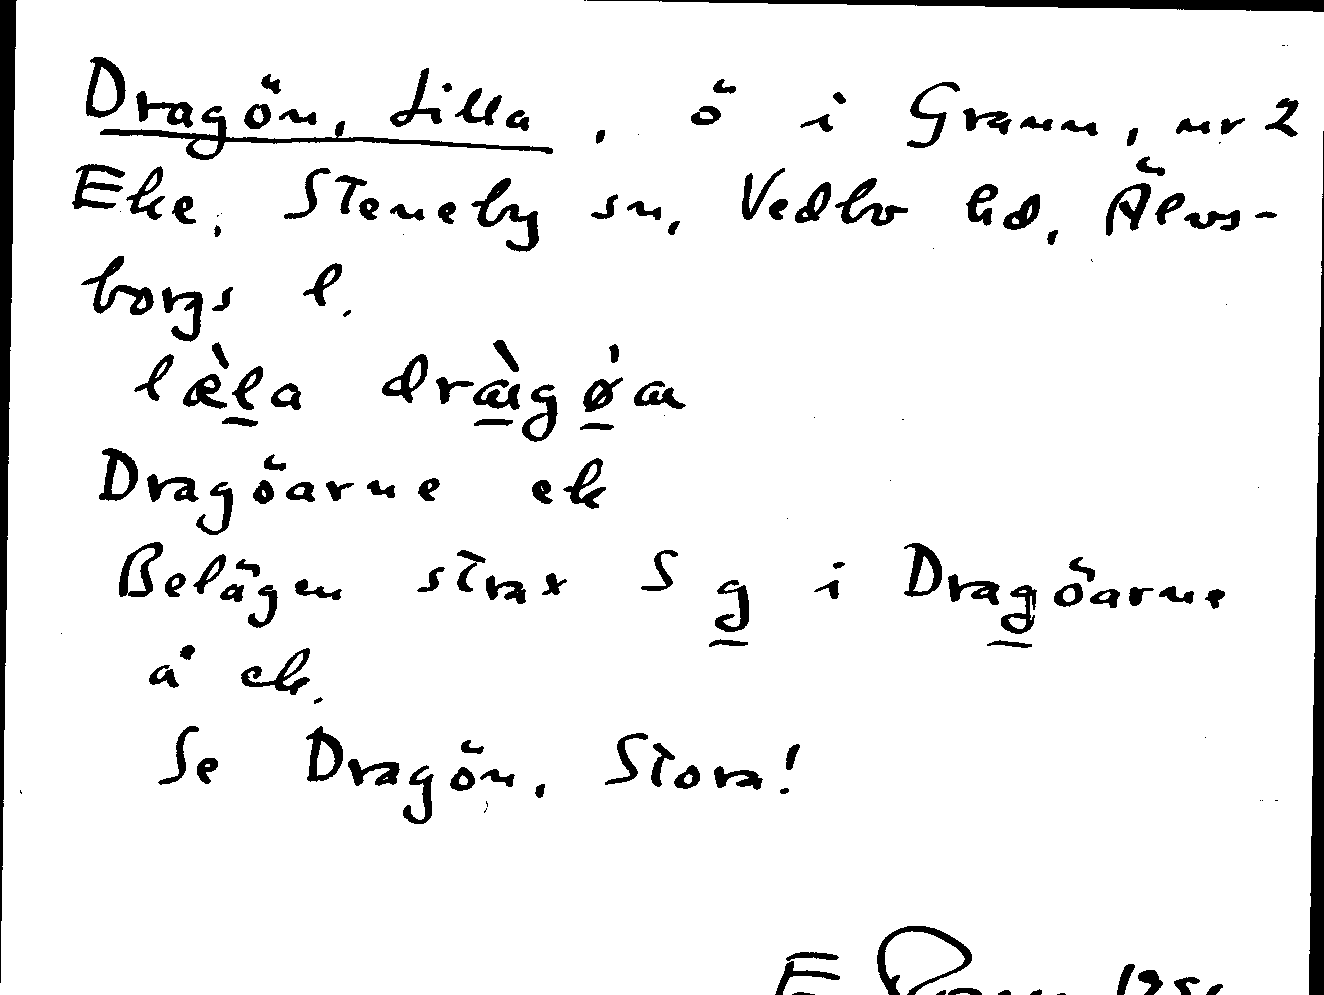 Dragön, Lilla, ö i Grann, nr 2
Eke, Steneby sn, Vedbo hd, Älvs-
borgs l.
læ̀la dràgǿa
Dragöarne ek
Belägen strax S g i Dragöarne
å ek.
Se Dragön, Stora!
E